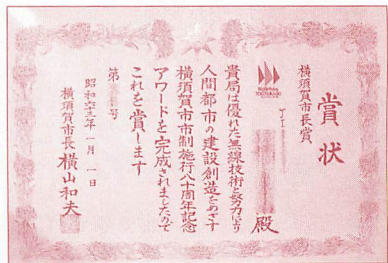 賞状
横須賀市長賞
殿
貴局は優れた無線技術と努力により
人間都市の建設創造をめざす
横須賀市市制施行八十周年記念
アワードを完成されましたので
これを賞します
第 号
昭和六十三年一月一日
横須賀市長 横山和夫